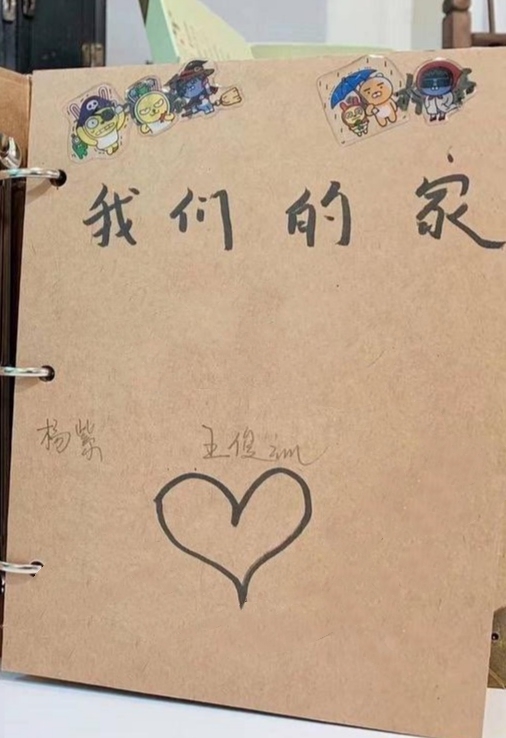 我们的家
杨紫 王俊